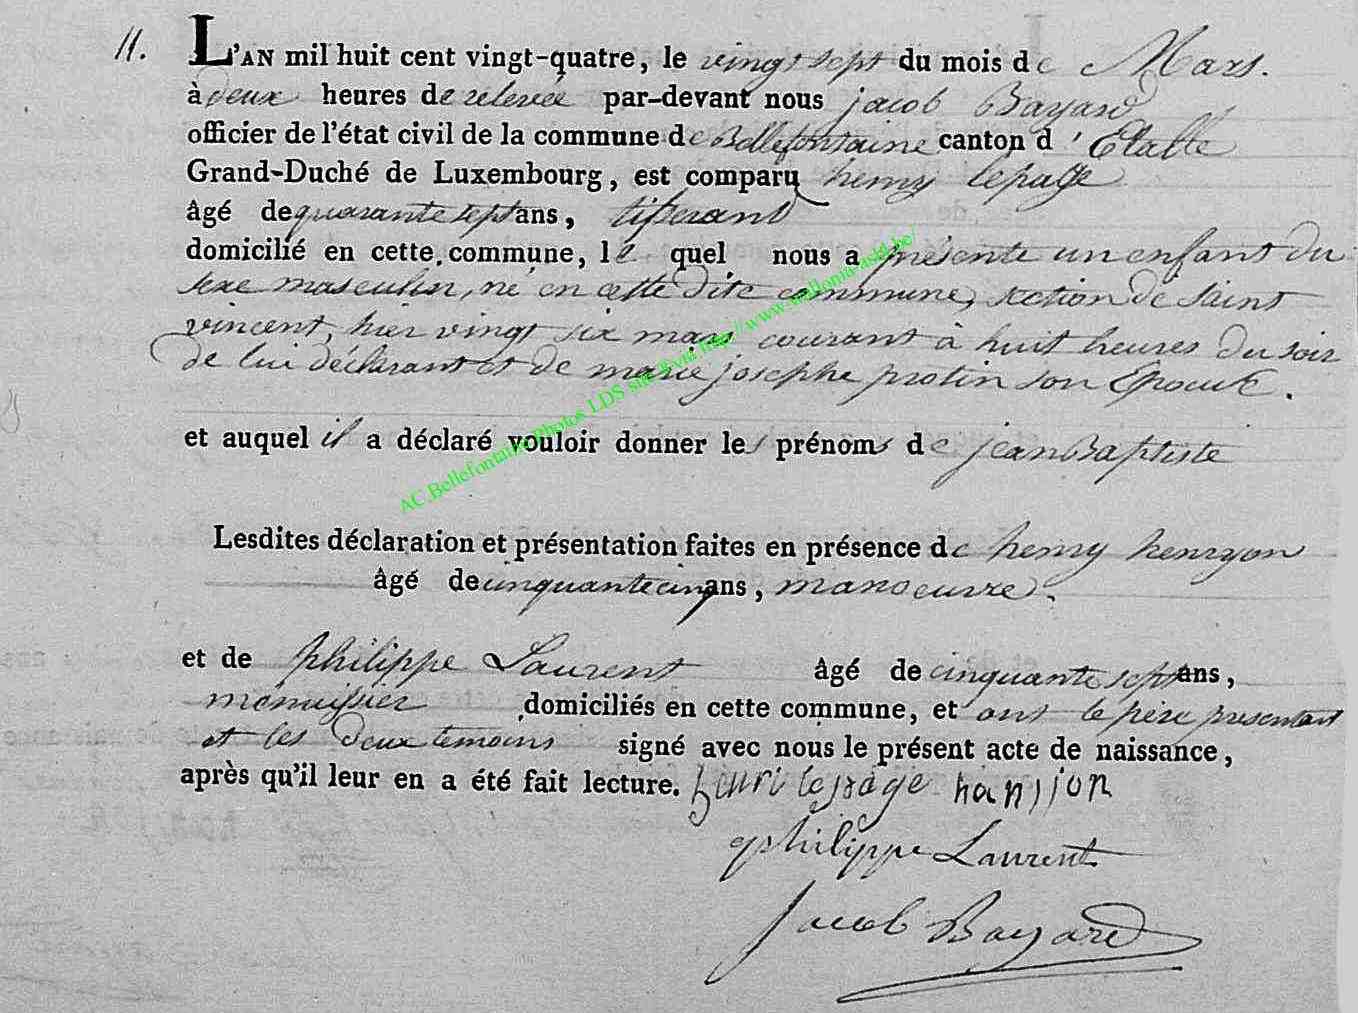 11. L'AN mil huit cent vingt-quatre, le vingt sept du mois de Mars.
à deux heures de relevée par-devant nous jacob Bayard
officier de l'état civil de la commune de Bellefontaine canton d'Etalle
Grand-Duché de Luxembourg, est comparu henry lepage
âgé de quarante sept ans, tisserand
domicilié en cette commune, le quel nous a présenté un enfant du
sexe masculin, né en cette dite commune, section de saint
vincent, hier vingt six mars courant à huit heures du soir
de lui déclarant et de marie josephe protin son Epouse.
et auquel il a déclaré vouloir donner les prénoms de jean Baptiste
Lesdites déclaration et présentation faites en présence de henry henryon
âgé de cinquante cinq ans, manoeuvre.
et de philippe Laurent âgé de cinquante sept ans,
menuisier domiciliés en cette commune, et ont le père presentant
et les deux temoins signé avec nous le présent acte de naissance,
après qu'il leur en a été fait lecture. henri lepage hanrion
philippe Laurent
Jacob Bayard
AC Bellefontaine Photos LDS sur http://www.wallonia-asbl.be/